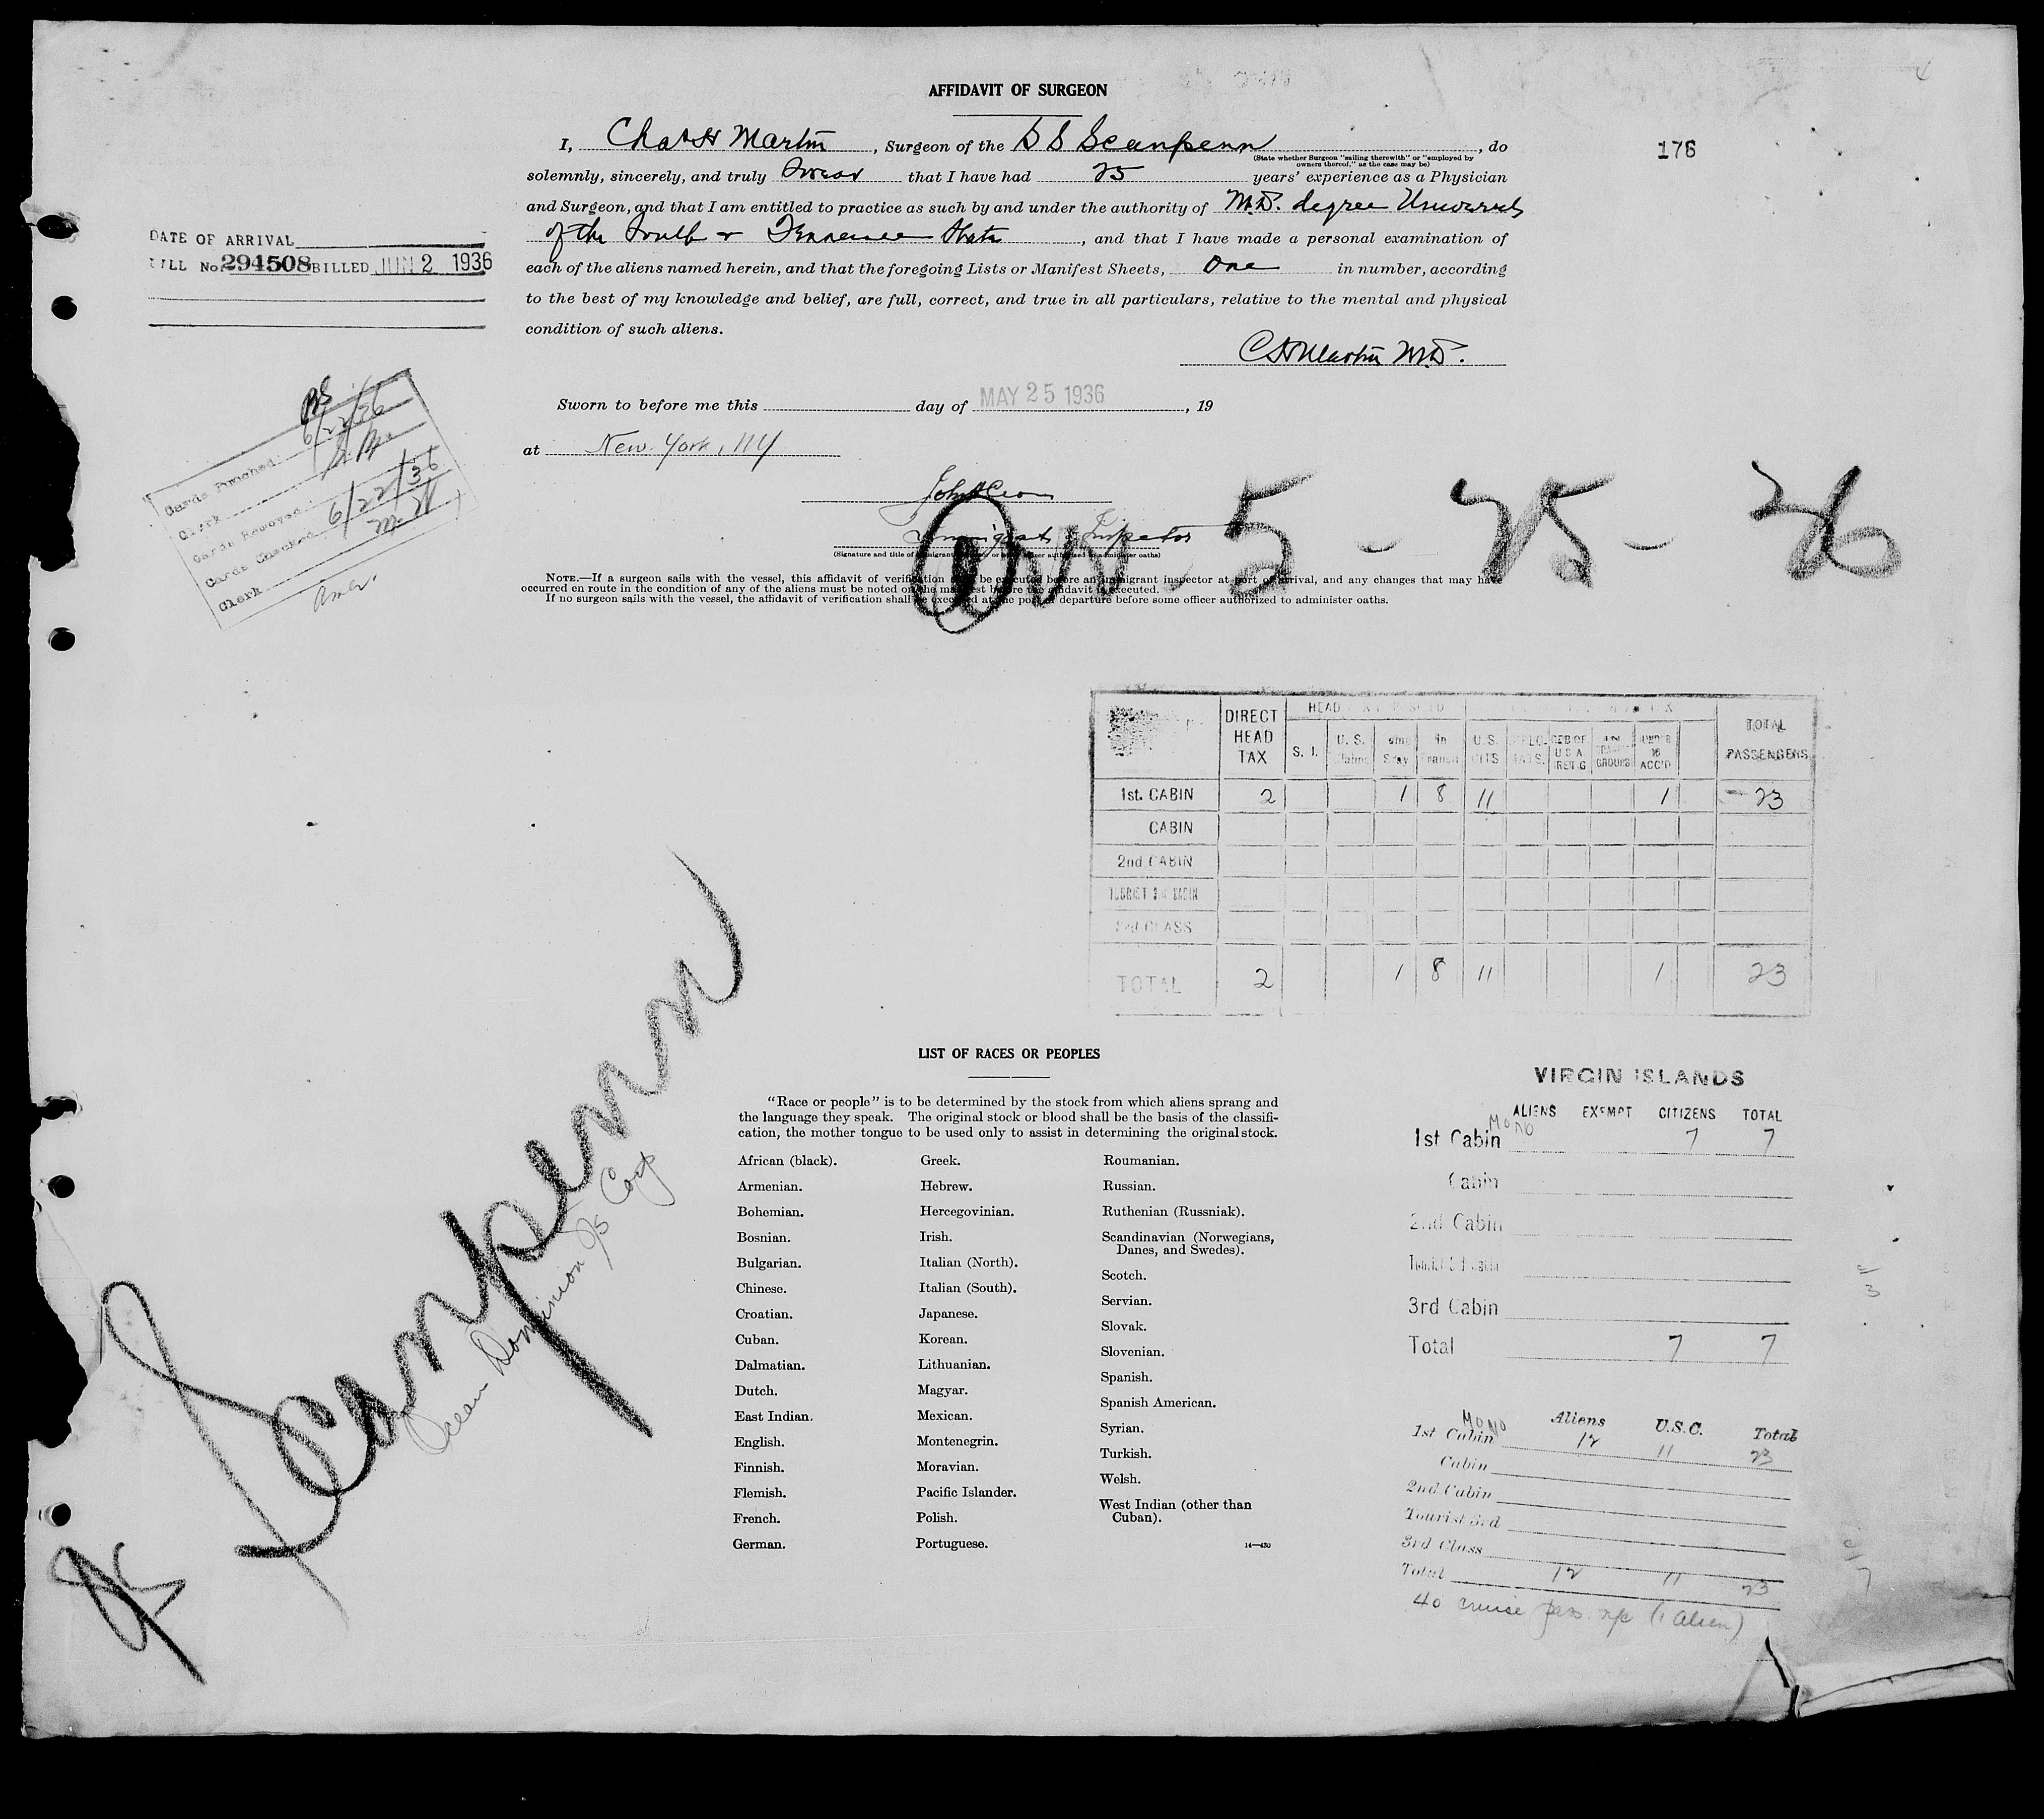 AFFIDAVIT OF SURGEON
I, Chas H Martin, Surgeon of the S S Scanpenn, do
(State whether Surgeon "sailing therewith" or "employed by owners thereof," as the case may be)
176
solemnly, sincerely, and truly swear that I have had 25 years' experience as a Physician
and Surgeon, and that I am entitled to practice as such by and under the authority of M.D. degree University
of the South & Tennessee State, and that I have made a personal examination of
each of the aliens named herein, and that the foregoing Lists or Manifest Sheets, One in number, according
to the best of my knowledge and belief, are full, correct, and true in all particulars, relative to the mental and physical
condition of such aliens.
C H Martin M.D.
DATE OF ARRIVAL
BILL No. 294508 BILLED JUN 2 1936
Sworn to before me this day of MAY 25 1936, 19
at New York, NY
Immigrant Inspector
Cards Punched 6/22/36
Clerk
Cards Removed
Cards Checked 6/22/36
Clerk
5 - 25 - 36
NOTE.—If a surgeon sails with the vessel, this affidavit of verification must be executed before an immigrant inspector at port of arrival, and any changes that may have
occurred en route in the condition of any of the aliens must be noted on the manifest before the affidavit is executed.
If no surgeon sails with the vessel, the affidavit of verification shall be executed at the port of departure before some officer authorized to administer oaths.
DIRECT HEAD TAX
S. I.
U. S.
In Transit
U.S. CITS
UNDER 16 ACC'D
TOTAL PASSENGERS
1st. CABIN 2 1 8 11 1 23
CABIN
2nd CABIN
TOURIST 3rd CABIN
3rd CLASS
TOTAL 2 1 8 11 1 23
Scanpenn
Ocean Dominion SS Corp
LIST OF RACES OR PEOPLES
"Race or people" is to be determined by the stock from which aliens sprang and
the language they speak. The original stock or blood shall be the basis of the classifi-
cation, the mother tongue to be used only to assist in determining the original stock.
African (black).
Armenian.
Bohemian.
Bosnian.
Bulgarian.
Chinese.
Croatian.
Cuban.
Dalmatian.
Dutch.
East Indian.
English.
Finnish.
Flemish.
French.
German.
Greek.
Hebrew.
Hercegovinian.
Irish.
Italian (North).
Italian (South).
Japanese.
Korean.
Lithuanian.
Magyar.
Mexican.
Montenegrin.
Moravian.
Pacific Islander.
Polish.
Portuguese.
Roumanian.
Russian.
Ruthenian (Russniak).
Scandinavian (Norwegians,
Danes, and Swedes).
Scotch.
Servian.
Slovak.
Slovenian.
Spanish.
Spanish American.
Syrian.
Turkish.
Welsh.
West Indian (other than
Cuban).
14—430
VIRGIN ISLANDS
ALIENS EXEMPT CITIZENS TOTAL
1st Cabin Mono 7 7
Cabin
2nd Cabin
3rd Cabin
Total 7 7
Aliens U.S.C. Total
1st Cabin Mono 12 11 23
Cabin
2nd Cabin
Tourist 3rd
3rd Class
Total 12 11 23
40 cruise pass. (1 Alien)